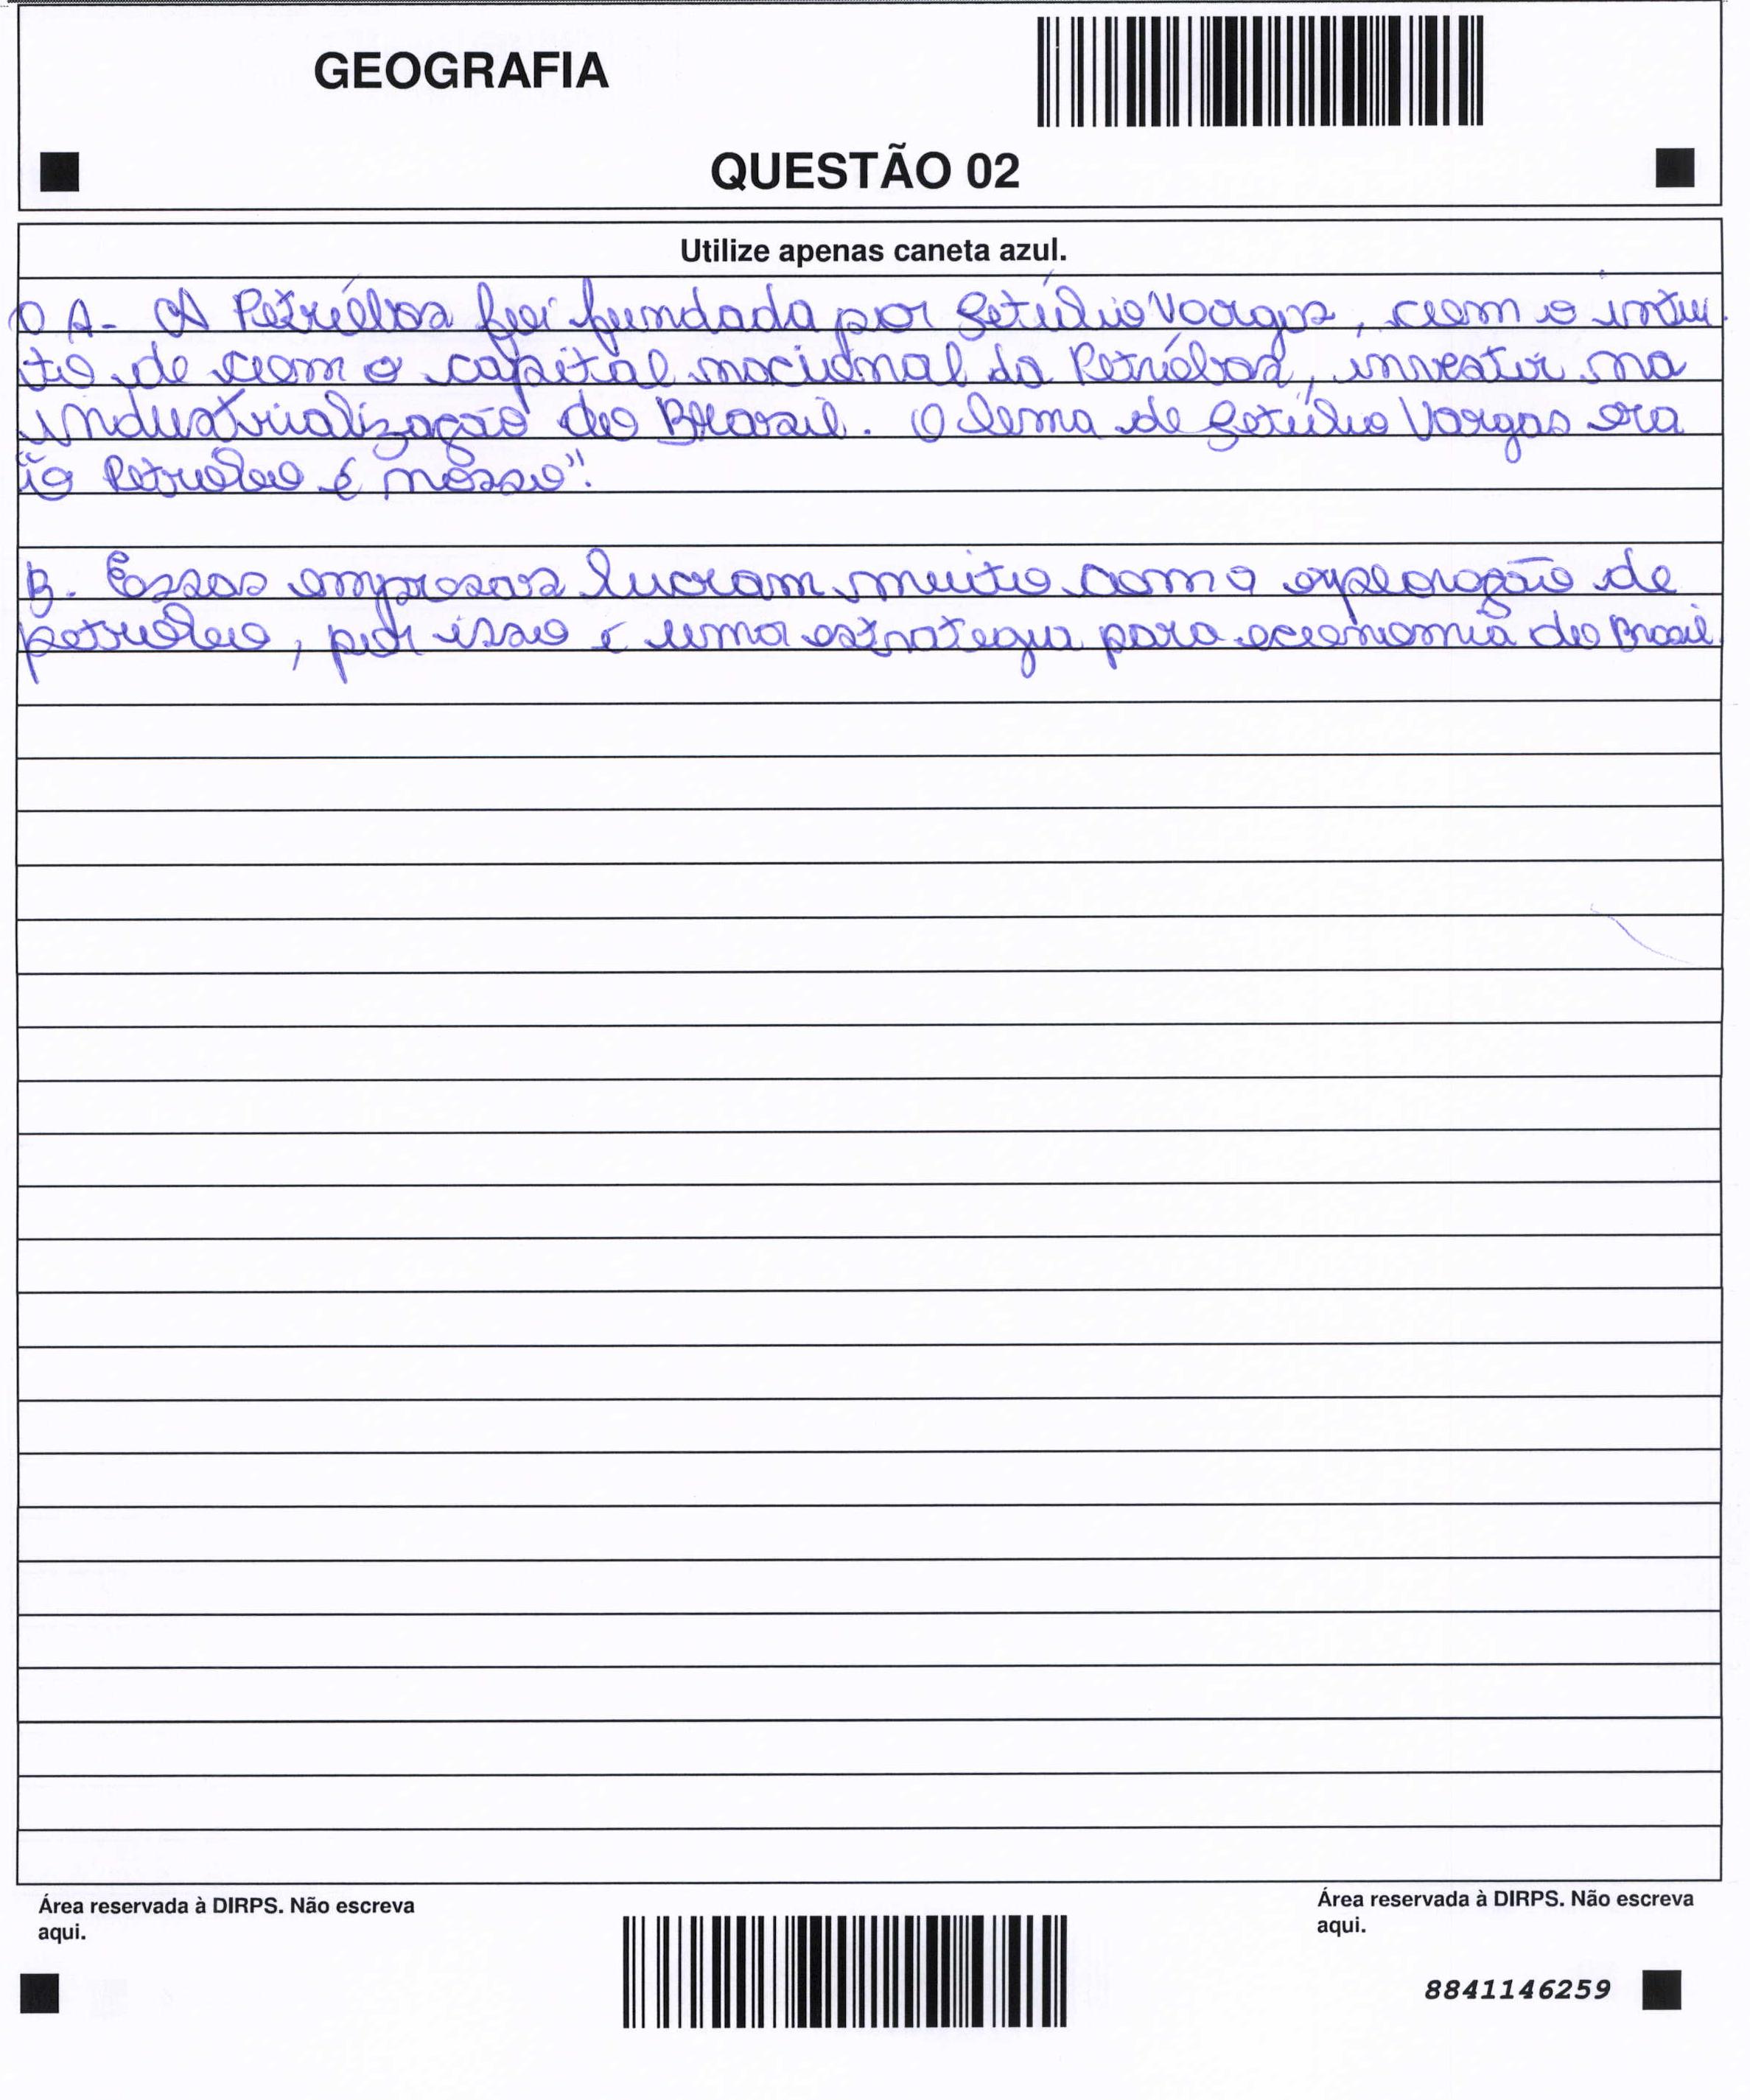 GEOGRAFIA
QUESTÃO 02
Utilize apenas caneta azul.
A- A Petróbas foi fundada por Getúlio Vargas, com o intui
to de com o capital nacional da Petróbas, investir na
industrialização do Brasil. O lema de Getúlio Vargas era
"o Petroleo é nosso".
B. Essas empresas lucram muito com a exploração de
petroleo, por isso é uma estrategia para economia do Brasil
Área reservada à DIRPS. Não escreva
aqui.
Área reservada à DIRPS. Não escreva
aqui.
8841146259